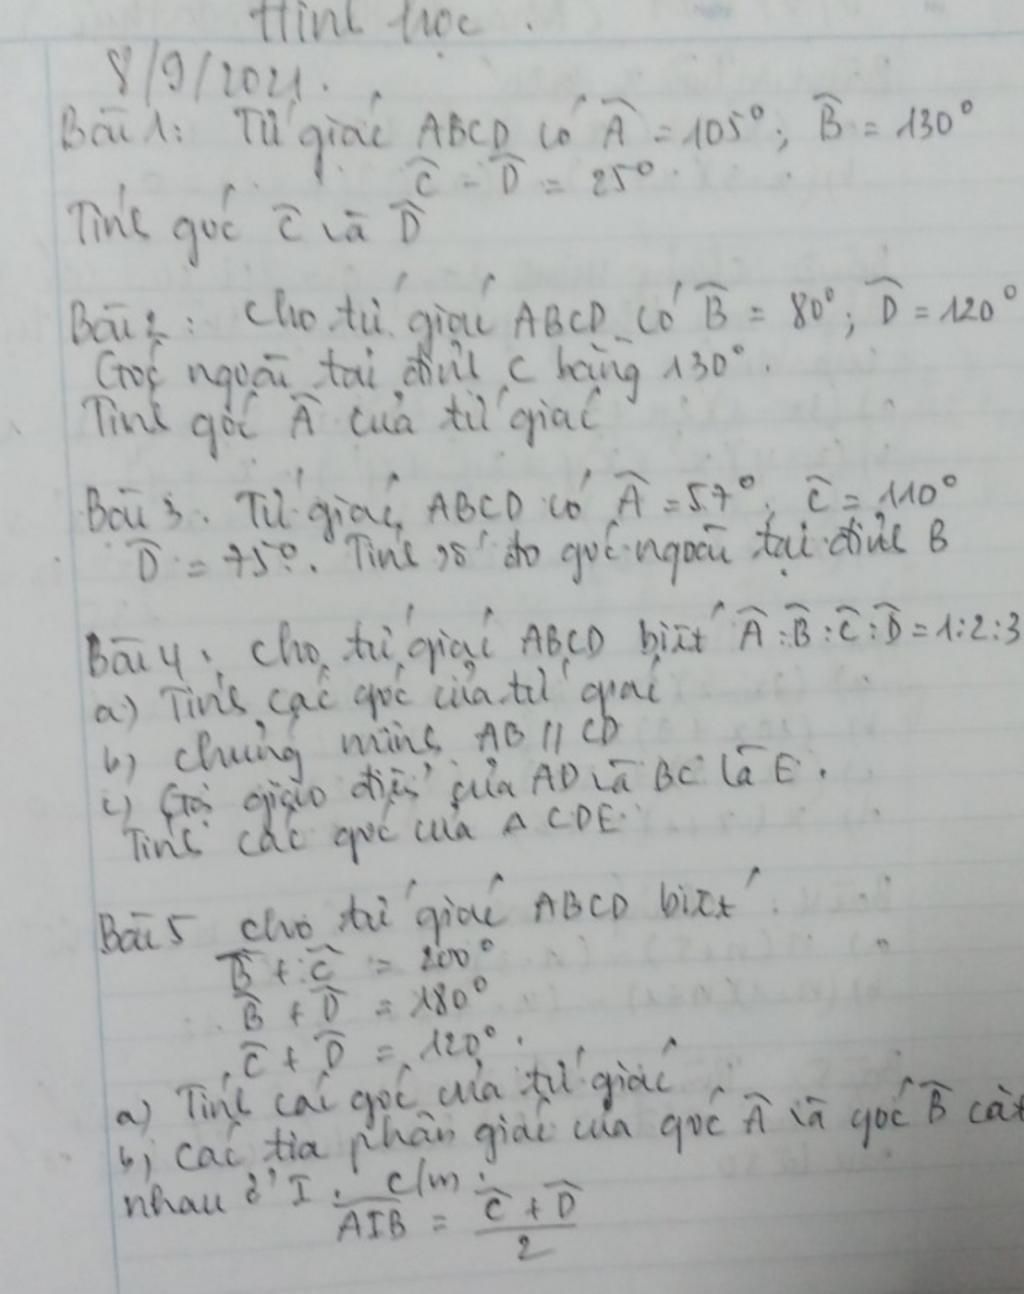 Hình học.
8/9/2021.
Bài 1: Tứ giác ABCD có Â = 105°; B̂ = 130°
Ĉ - D̂ = 25°.
Tính góc Ĉ và D̂
Bài 2: Cho tứ giác ABCD có B̂ = 80°; D̂ = 120°
Góc ngoài tại đỉnh C bằng 130°.
Tính góc Â của tứ giác
Bài 3. Tứ giác ABCD có Â = 57°; Ĉ = 110°
D̂ = 75°. Tính số đo góc ngoài tại đỉnh B
Bài 4: Cho tứ giác ABCD biết Â : B̂ : Ĉ : D̂ = 1:2:3
a) Tính các góc của tứ giác
b) Chứng minh AB // CD
c) Gọi giao điểm của AD và BC là E.
Tính các góc của Δ CDE.
Bài 5 cho tứ giác ABCD biết:
B̂ + Ĉ = 200°
B̂ + D̂ = 180°
Ĉ + D̂ = 120°.
a) Tính các góc của tứ giác
b) các tia phân giác của góc Â và góc B̂ cắt
nhau ở I. c/m:
AIB = Ĉ + D̂
2